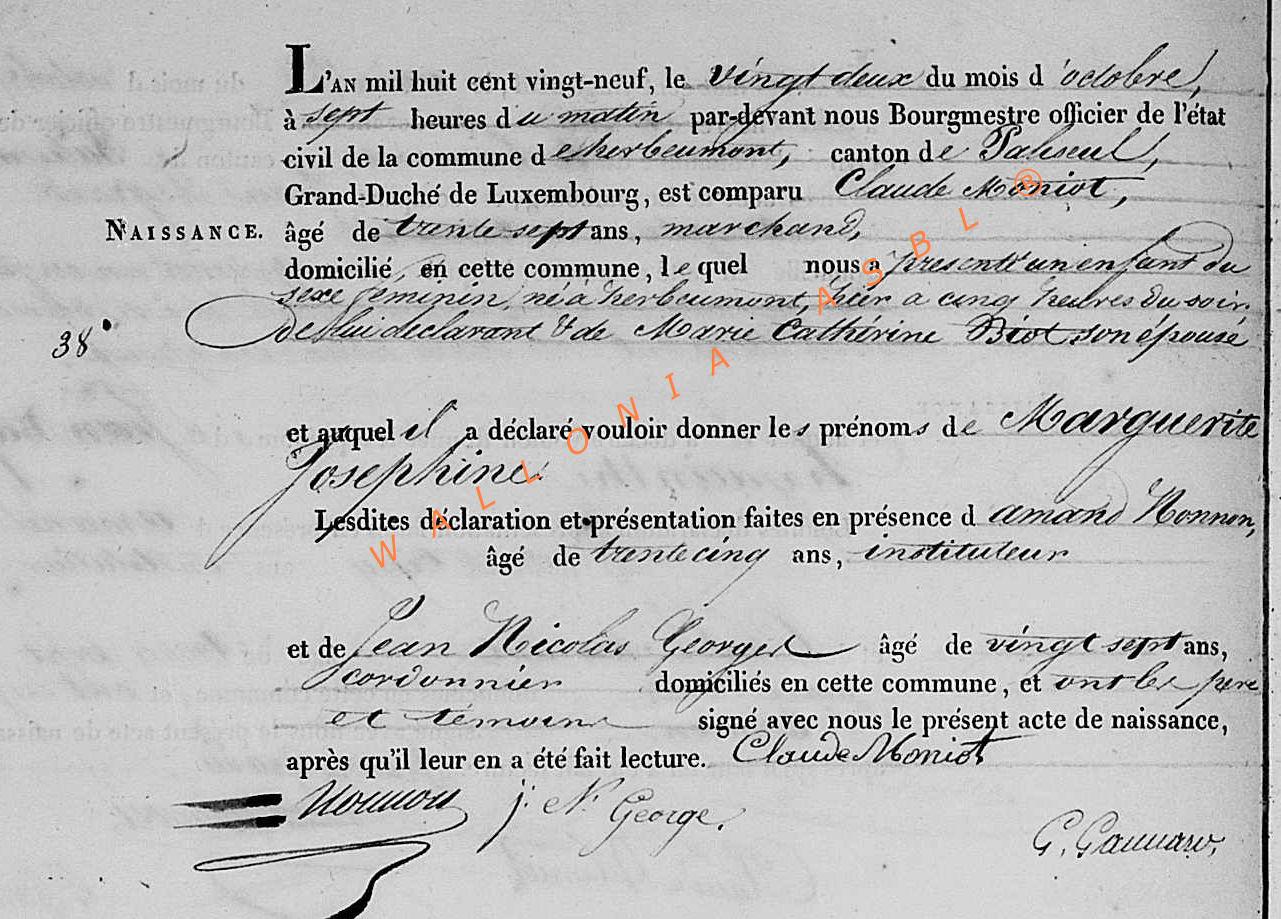 L'AN mil huit cent vingt-neuf, le vingt deux du mois d'octobre,
à sept heures du matin par-devant nous Bourgmestre officier de l'état
civil de la commune d'herbeumont, canton de Paliseul,
Grand-Duché de Luxembourg, est comparu Claude Moniot,
NAISSANCE. âgé de trente sept ans, marchand,
domicilié, en cette commune, lequel nous a presenté un enfant du
sexe féminin, né à herbeumont, hier a cinq heures du soir,
38 de lui declarant & de Marie Cathérine Biot son épouse
et auquel il a déclaré vouloir donner les prénoms de Marguerite
Josephine.
Lesdites déclaration et présentation faites en présence d'amand Nonnon,
âgé de trente cinq ans, instituteur
et de Jean Nicolas Georges âgé de vingt sept ans,
cordonnier domiciliés en cette commune, et ont les pere
et témoins signé avec nous le présent acte de naissance,
après qu'il leur en a été fait lecture. Claude Moniot
Nonnon j. N. George.
WALLONIA ASBL ®